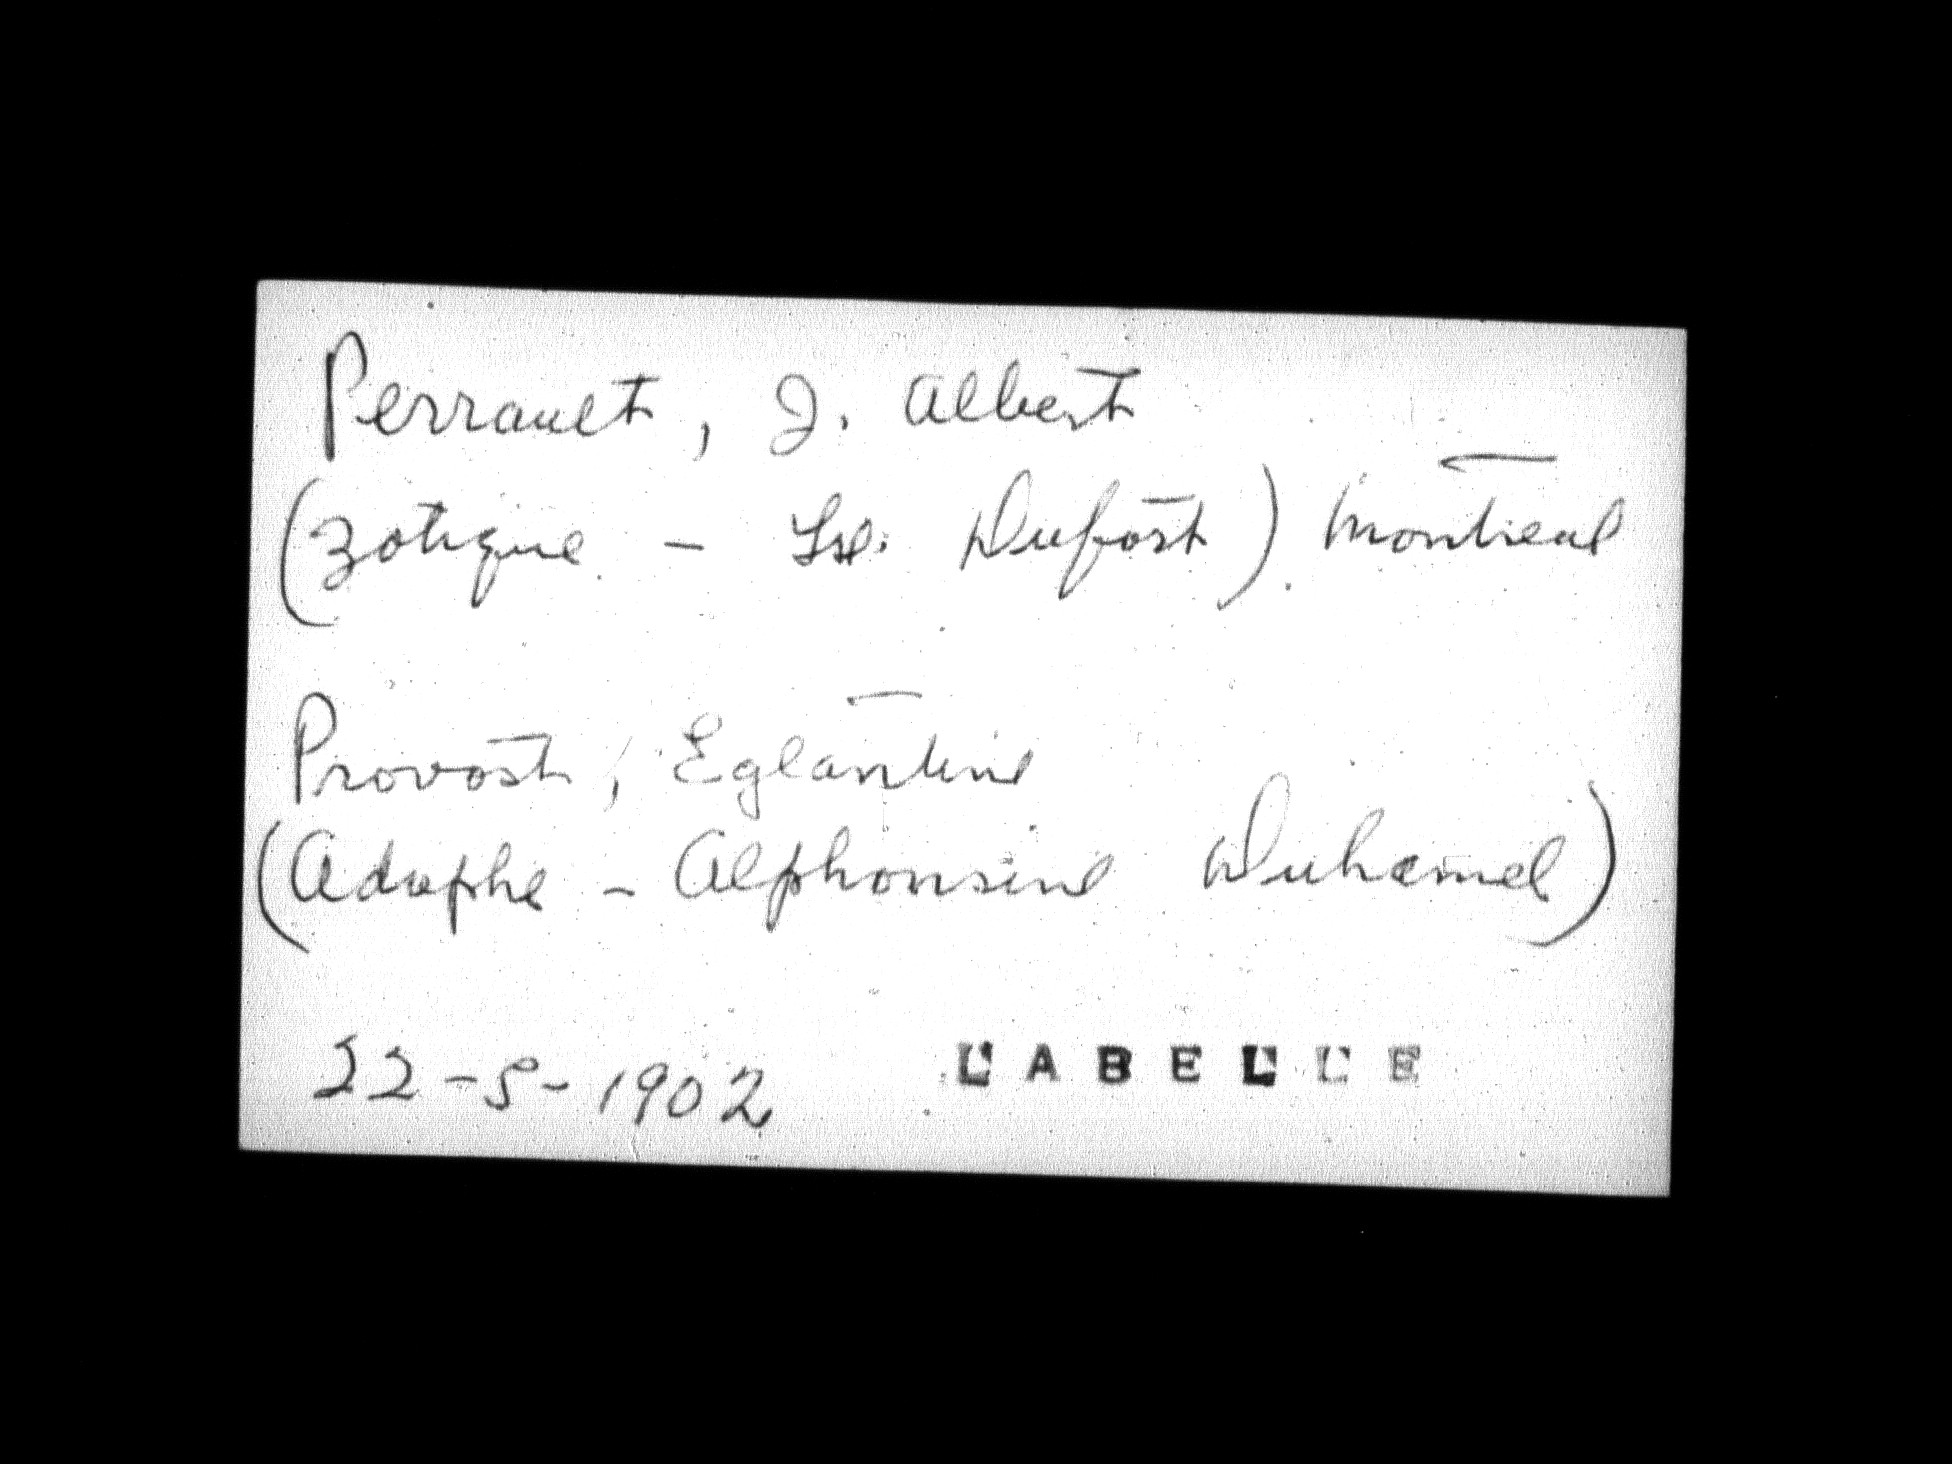 Perrault, J. Albert
(Zotique - Dufort) Montreal
Provost, Eglantine
(Adolphe - Alphonsine Duhamel)
22-5-1902 LABELLE